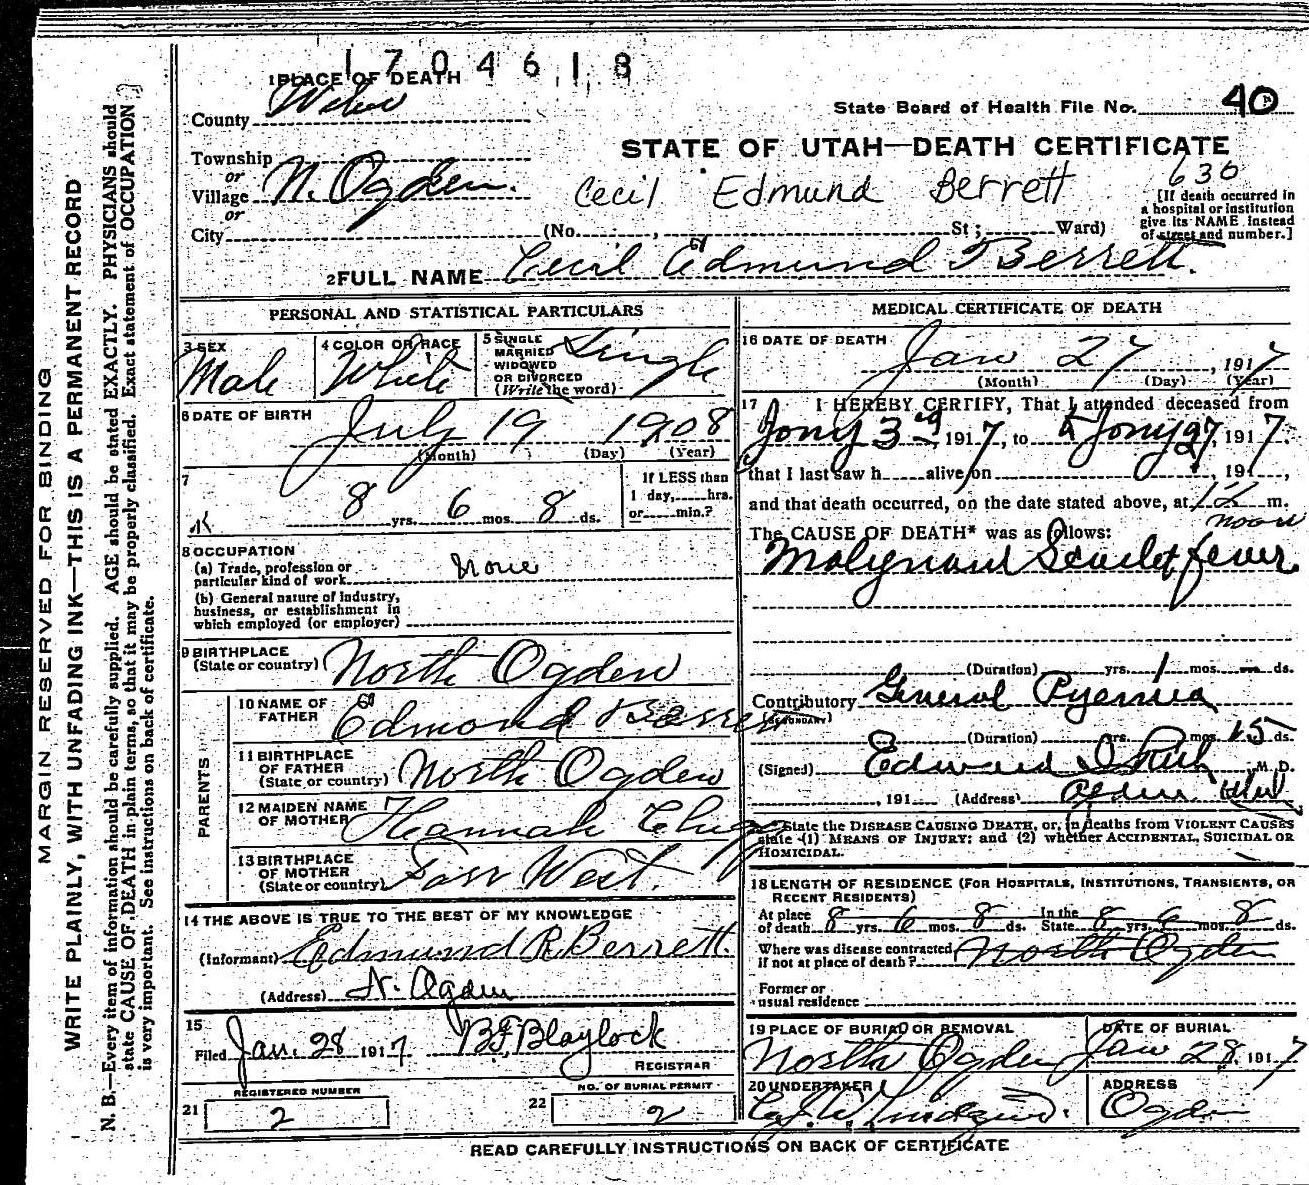 1704618
1 PLACE OF DEATH
County Weber
State Board of Health File No. 40
STATE OF UTAH—DEATH CERTIFICATE
Township
or
Village N. Ogden.
or
City
Cecil Edmund Berrett
636
[If death occurred in
a hospital or institution
give its NAME instead
of street and number.]
(No. , St ; Ward)
2 FULL NAME Cecil Edmund Berrett.
PERSONAL AND STATISTICAL PARTICULARS
3 SEX Male
4 COLOR OR RACE White
5 SINGLE
MARRIED
WIDOWED
OR DIVORCED
(Write the word) Single
6 DATE OF BIRTH July 19 1908
(Month) (Day) (Year)
7
8 yrs. 6 mos. 8 ds.
If LESS than
1 day, hrs.
or min.?
8 OCCUPATION
(a) Trade, profession or
particular kind of work None
(b) General nature of industry,
business, or establishment in
which employed (or employer)
9 BIRTHPLACE
(State or country) North Ogden
PARENTS
10 NAME OF
FATHER Edmond Berrett
11 BIRTHPLACE
OF FATHER
(State or country) North Ogden
12 MAIDEN NAME
OF MOTHER Hannah
13 BIRTHPLACE
OF MOTHER
(State or country) Farr West.
14 THE ABOVE IS TRUE TO THE BEST OF MY KNOWLEDGE
(Informant) Edmund R. Berrett.
(Address) N. Ogden
15
Filed Jan. 28 1917 B F Blaylock
REGISTRAR
REGISTERED NUMBER
21 2
NO. OF BURIAL PERMIT
22 2
MEDICAL CERTIFICATE OF DEATH
16 DATE OF DEATH Jan 27, 1917
(Month) (Day) (Year)
17 I HEREBY CERTIFY, That I attended deceased from
Jany 3rd 1917, to Jany 27, 1917,
that I last saw h alive on , 191 ,
and that death occurred, on the date stated above, at 12 m.
noon
The CAUSE OF DEATH* was as follows:
Malignant Scarlet fever
(Duration) yrs. 1 mos. — ds.
Contributory General Pyemia
(SECONDARY)
(Duration) yrs. mos. 15 ds.
(Signed) Edward I Rich M. D.
, 191 (Address) Ogden Utah
State the DISEASE CAUSING DEATH, or, in deaths from VIOLENT CAUSES
state (1) MEANS OF INJURY; and (2) whether ACCIDENTAL, SUICIDAL OR
HOMICIDAL.
18 LENGTH OF RESIDENCE (FOR HOSPITALS, INSTITUTIONS, TRANSIENTS, OR
RECENT RESIDENTS)
At place
of death 8 yrs. 6 mos. 8 ds. In the
State 8 yrs. 6 mos. 8 ds.
Where was disease contracted
if not at place of death? North Ogden
Former or
usual residence
19 PLACE OF BURIAL OR REMOVAL
North Ogden
DATE OF BURIAL
Jan 28, 1917
20 UNDERTAKER
ADDRESS
Ogden
READ CAREFULLY INSTRUCTIONS ON BACK OF CERTIFICATE
MARGIN RESERVED FOR BINDING
WRITE PLAINLY, WITH UNFADING INK—THIS IS A PERMANENT RECORD
N. B.—Every item of information should be carefully supplied. AGE should be stated EXACTLY. PHYSICIANS should
state CAUSE OF DEATH in plain terms, so that it may be properly classified. Exact statement of OCCUPATION
is very important. See instructions on back of certificate.